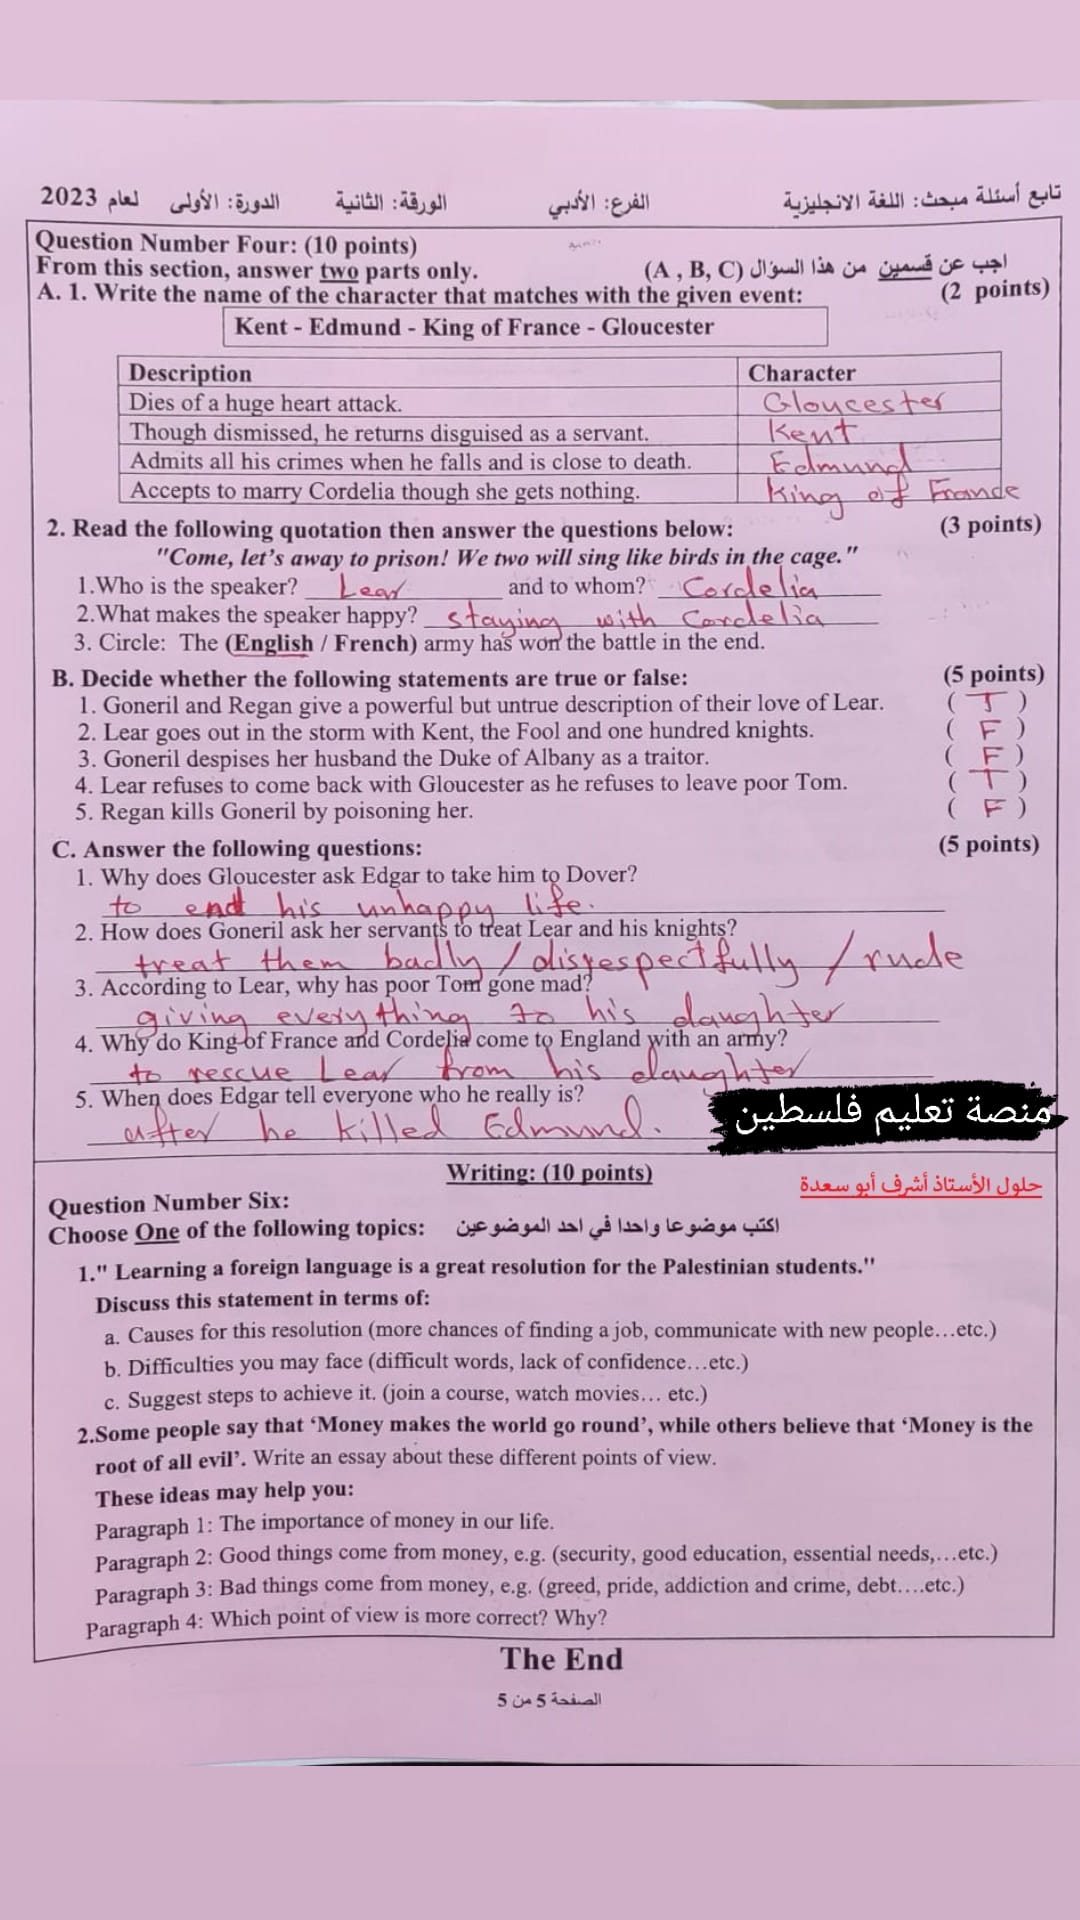 تابع أسئلة مبحث: اللغة الانجليزية الفرع: الأدبي الورقة: الثانية الدورة: الأولى لعام 2023
Question Number Four: (10 points)
From this section, answer two parts only. اجب عن قسمين من هذا السؤال (A , B, C)
A. 1. Write the name of the character that matches with the given event: (2 points)
Kent - Edmund - King of France - Gloucester
Description Character
Dies of a huge heart attack. Gloucester
Though dismissed, he returns disguised as a servant. Kent
Admits all his crimes when he falls and is close to death. Edmund
Accepts to marry Cordelia though she gets nothing. King of France
2. Read the following quotation then answer the questions below: (3 points)
"Come, let's away to prison! We two will sing like birds in the cage."
1.Who is the speaker? Lear and to whom? Cordelia
2.What makes the speaker happy? staying with Cordelia
3. Circle: The (English / French) army has won the battle in the end.
B. Decide whether the following statements are true or false: (5 points)
1. Goneril and Regan give a powerful but untrue description of their love of Lear. ( T )
2. Lear goes out in the storm with Kent, the Fool and one hundred knights. ( F )
3. Goneril despises her husband the Duke of Albany as a traitor. ( F )
4. Lear refuses to come back with Gloucester as he refuses to leave poor Tom. ( T )
5. Regan kills Goneril by poisoning her. ( F )
C. Answer the following questions: (5 points)
1. Why does Gloucester ask Edgar to take him to Dover?
to end his unhappy life.
2. How does Goneril ask her servants to treat Lear and his knights?
treat them badly / disrespectfully / rude
3. According to Lear, why has poor Tom gone mad?
giving everything to his daughter
4. Why do King of France and Cordelia come to England with an army?
to rescue Lear from his daughter
5. When does Edgar tell everyone who he really is?
after he killed Edmund.
منصة تعليم فلسطين
Writing: (10 points)
حلول الأستاذ أشرف أبو سعدة
Question Number Six:
Choose One of the following topics: اكتب موضوعا واحدا في احد الموضوعين
1." Learning a foreign language is a great resolution for the Palestinian students."
Discuss this statement in terms of:
a. Causes for this resolution (more chances of finding a job, communicate with new people…etc.)
b. Difficulties you may face (difficult words, lack of confidence…etc.)
c. Suggest steps to achieve it. (join a course, watch movies… etc.)
2.Some people say that ‘Money makes the world go round’, while others believe that ‘Money is the
root of all evil’. Write an essay about these different points of view.
These ideas may help you:
Paragraph 1: The importance of money in our life.
Paragraph 2: Good things come from money, e.g. (security, good education, essential needs,…etc.)
Paragraph 3: Bad things come from money, e.g. (greed, pride, addiction and crime, debt….etc.)
Paragraph 4: Which point of view is more correct? Why?
The End
الصفحة 5 من 5